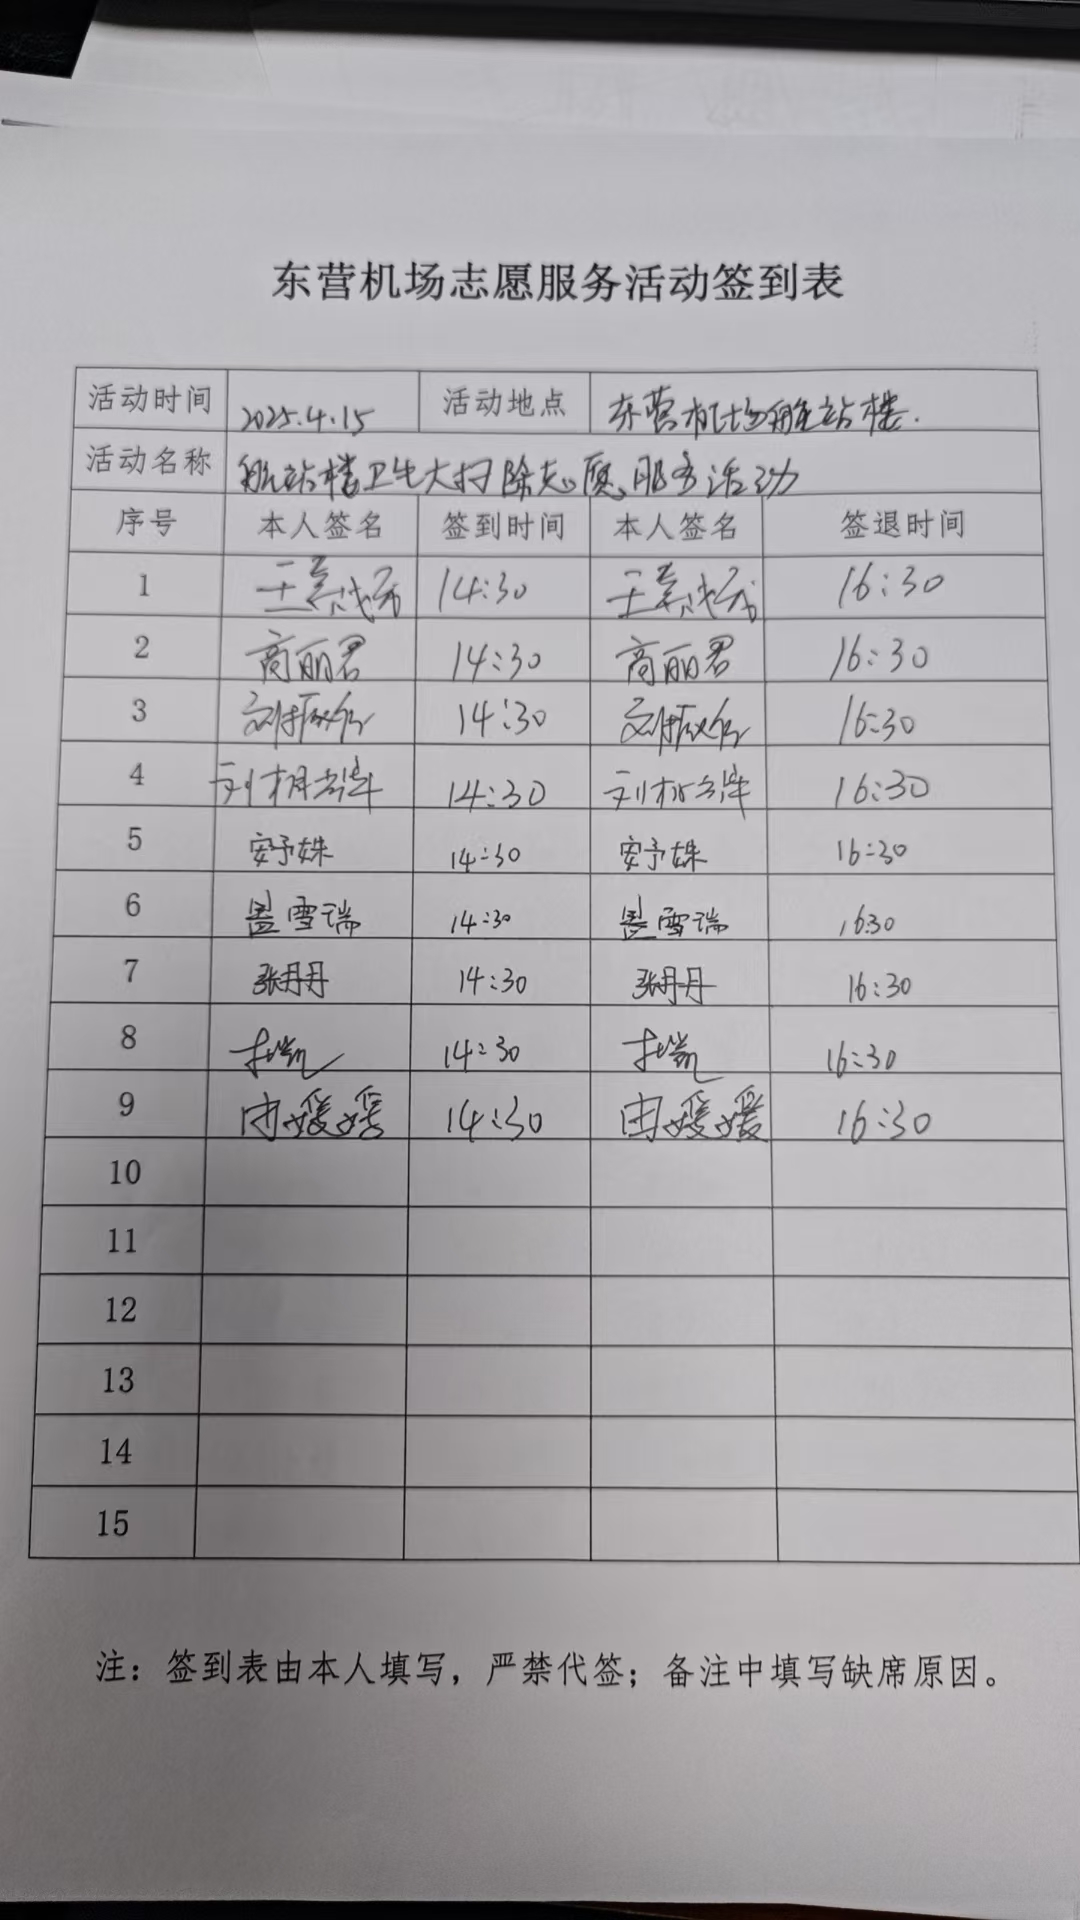 东营机场志愿服务活动签到表
活动时间 2025.4.15 活动地点 东营机场航站楼.
活动名称 航站楼卫生大扫除志愿服务活动
序号 本人签名 签到时间 本人签名 签退时间
1 14:30 16:30
2 商丽君 14:30 商丽君 16:30
3 14:30 16:30
4 14:30 16:30
5 安予姝 14:30 安予姝 16:30
6 盖雪瑞 14:30 盖雪瑞 16:30
7 张丹丹 14:30 张丹丹 16:30
8 14:30 16:30
9 由媛媛 14:30 由媛媛 16:30
10
11
12
13
14
15
注：签到表由本人填写，严禁代签；备注中填写缺席原因。